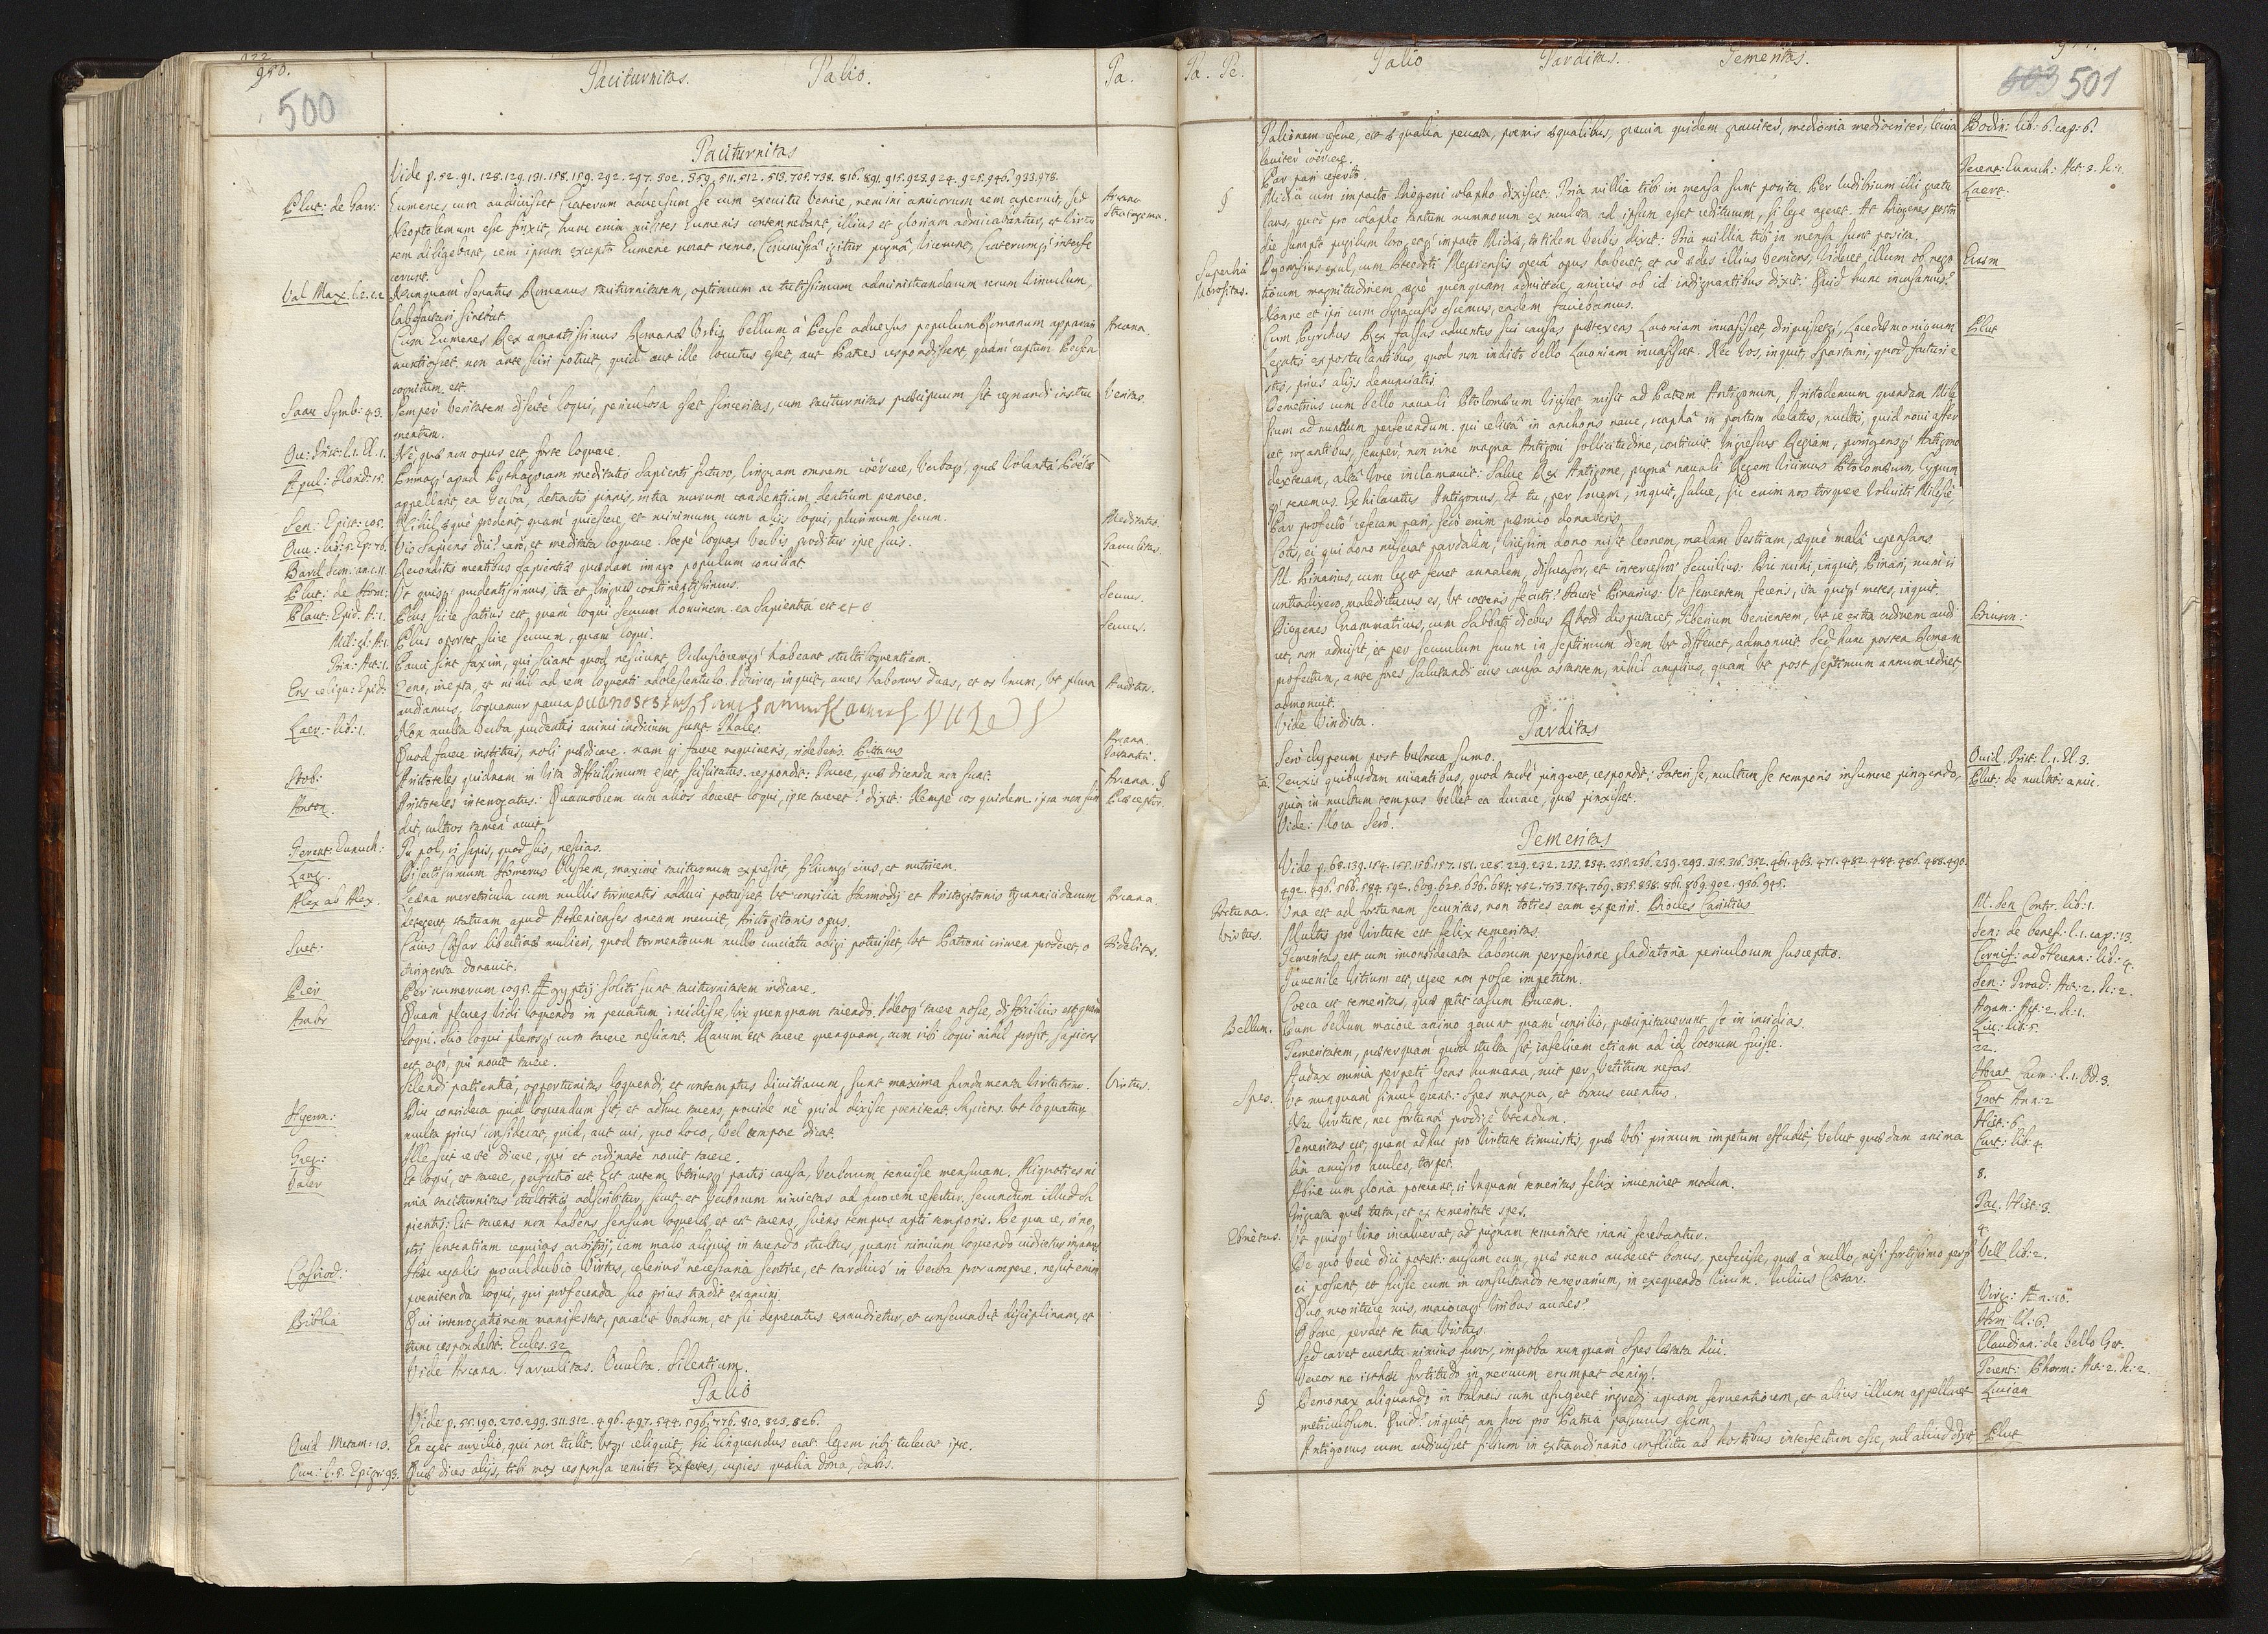 950.
500
Taciturnitas. Talio. Ta.
Taciturnitas
Vide p. 52. 91. 128. 129. 131. 158. 159. 292. 297. 302. 359. 511. 512. 513. 705. 738. 816. 891. 915. 923. 924. 925. 946. 933. 978.
Plut: de Garr: Eumenes cum audivisset Craterum adversum se cum exercitu venire, nemini amicorum rem aperuit, sed Arcana
Neoptolemum esse finxit, hunc enim milites Eumenis contemnebant, illius et gloriam admirabantur, et virtu Strategema.
tem diligebant, rem ipsam excepto Eumene norat nemo. Commissâ igitur pugnâ vicerunt, Craterumq; interfe
cerunt.
Val Max. l. 2. c. 2 Nunquam Senatus Romanus taciturnitatem, optimum ac tutissimum administrandarum rerum vinculum,
labefactari sinebat.
Cum Eumenes Rex amantissimus Romanæ Urbis bellum à Perse adversus populum Romanum apparari Arcana.
nuntiasset, non ante sciri potuit, quid aut ille locutus esset, aut Patres respondissent, quàm captum Persen
cognitum est.
Saav Symb: 43. Semper veritatem disertè loqui, periculosa esset sinceritas, cum taciturnitas præcipuum sit regnandi instru Veritas.
mentum.
Ou: Trist: l. 1. El. 1. Nè quæ non opus est, forte loquare.
Apul: Florid: 15. Primaq; apud Pythagoram meditatio Sapienti futuro, linguam omnem coërcere, verbaq; quæ volantia Poëtæ
appellant, ea verba, detractis pinnis, intra murum candentium dentium premere.
Sen: Epist: 105. Nihil æquè proderit, quàm quiescere, et minimum cum alijs loqui, plurimum secum. Meditatio.
Ouu: lib: 5. Ep: 76. Vis Sapiens dici? rarò, et meditata loquare. Sæpè loquax verbis proditur ipse suis. Garrulitas.
Barcl Icon: an: c. 11. Reconditis mentibus sapientiæ quædam imago populum conciliat
Plut: de Hom: Ut quisq; prudentissimus, ita et linguæ continentissimus.
Plaut: Epid. A: 1. Plus scire satius est quàm loqui Servum hominem. ea Sapientia est et c Servus.
Mil: gl: A: 1. Plus oportet scire servum, quàm loqui. Servus.
Trin: Act: 1. Pauci sint faxim, qui sciant quod nesciunt. Occlusioremq; habeant stultiloquentiam.
Ers reliqu: Epict: Zeno, inepta, et nihil ad rem loquenti adolescentulo. Idcirco, inquit, aures habemus duas, et os unum, ut plura Auditus.
audiamus, loquamur pauca
Laer: lib: 1. Non multa verba prudentis animi indicium sunt Thales.
Quod facere instituis, noli prædicare. nam si facere nequiveris, rideberis. Pittacus Arcana. Jactantia.
Stob: Aristoteles quidnam in vita difficillimum esset, sciscitatus. respondit: Tacere, quæ dicenda non sunt. Arcana.
Anton. Aristoteles interrogatus: Quamobrem cum alios doceret loqui, ipse taceret? dixit: Nempe cos quidem ipsa non scin Præceptor.
dit, cultros tamen acuit.
Terent: Eunuch: Tu pol, si sapis, quod scis, nescias.
Lang. Disertissimum Homerus Ulissem, maximè taciturnum expressit, filiumq; eius, et nutricem.
Alex ab Alex. Leæna meretricula cum nullis tormentis adduci potuisset, ut consilia Harmodij et Aristogitonis tyrannicidarum Arcana.
detegeret, statuam apud Athenienses æneam meruit, Aristogitonis opus.
Suet: Caius Cæsar libertinæ mulieri, quod tormentorum nullo cruciatu adigi potuisset, ut Patroni crimen proderet, o Fidelitas.
ctingenta donavit.
Pier Per numerum 1095. Ægyptij soliti sunt taciturnitatem indicare.
Ambr Quàm plures vidi loquendo in peccatum incidisse, vix quenquam tacendo. Ideoq; tacere nosse, difficilius est, quàm
loqui. Scio loqui plerosq; cum tacere nesciant. Rarum est tacere quenquam, cum sibi loqui nihil prosit, Sapiens
est ergò, qui novit tacere.
Silendi patientia, opportunitas loquendi, et contemptus divitiarum, sunt maxima fundamenta virtutum. Virtus.
Hyeron: Diu considera quid loquendum sit, et adhuc tacens, provide nè quid dixisse pœniteat. Sapiens ut loquatur
multa prius considerat, quid, aut cui, quo loco, vel tempore dicat.
Greg: Ille scit rectè dicere, qui et ordinatè novit tacere.
Valer Et loqui, et tacere, perfectio est. Est autem utriusq; partis causa, verborum tenuisse mensuram. Aliquoties ni
mia taciturnitas stultitiæ adscribitur, sicut et verborum nimietas ad furorem refertur, secundum illud Sa
pientis: Est tacens non habens sensum loquelæ, et est tacens, sciens tempus apti temporis. De qua re, si no
stri sententiam requiras arbitrij, iam malo aliquis in tacendo stultus, quàm nimium loquendo iudicetur insanus
Cassiod: Etsi regalis proculdubio virtus, celerius necessaria sentire, et tardius in verba prorumpere. nescit enim
pœnitenda loqui, qui proferenda suo prius tradit examini.
Biblia Qui interrogationem manifestat, parabit verbum, et sic deprecatus exaudietur, et conservabit disciplinam, et
tunc respondebit. Eccles. 32
Vide Arcana. Garrulitas. Occulta. Silentium.
Talio
Vide p. 55. 190. 270. 299. 311. 312. 496. 497. 544. 596. 776. 810. 823. 826.
Ovid Metam: 13. En eget auxilio, qui non tulit. utq; reliquit, sic linquendus erat. legem sibi dixerat ipse.
Ouu: l. 8. Epigr: 93. Quæ dices alijs, tibi mox responsa remitti Expectes, cupies qualia dona, dabis.
Ta. Te. Talio Tarditas. Temeritas.
603 501
Talionem esse, est æqualia peccata, pœnis æqualibus, gravia quidem graviter, mediocria mediocriter, levia Bodin: lib: 6. cap: 6.
leviter coërcere.
Par pari referto. Terent: Eunuch: Act: 3. Sc: 1.
§ Midia cum impacto Diogeni colapho dixisset: Tria millia tibi in mensa sunt posita. Per ludibrium illi gratu Laert.
laus, quod pro colapho tantum nummorum ex mulcta ad ipsum esset rediturum, si lege ageret. At Diogenes postri
die sumpto pugilum loro, eoq; impacto Midiæ, totidem verbis dixit: Tria millia tibi in mensa sunt posita.
Superbia Morositas. Dyonisius exul, cum Theodoti Megarensis operâ opus haberet, et ad ædes illius veniens, videret illum ob nego Erasm
tiorum magnitudinem ægrè quenquam admittere, amicis ob id indignantibus dixit: Quid hunc incusamus?
Nonne et ipsi cum Syracusis essemus, eadem faciebamus.
Cum Pyrrhus Rex falsas adventus sui causas prætexens Laconiam invasisset, diripuissetq;, Lacedæmoniorum Plut
Legatis expostulantibus, quod non indicto bello Laconiam invasisset. Nec vos, inquit, Spartani, quod facturi e
stis, prius alijs denunciatis.
Demetrius cum bello navali Ptolomæum vicisset misit ad Patrem Antigonum, Aristodemum quendam Mile
sium ad nuntium perferendum. qui relictâ in anchoris nave, scaphâ in portum delatus, multis, quid novi affer
ret, rogantibus, semper, non sinè magna Antigoni sollicitudine, conticuit. Ingressus Regiam, porrigensq; Antigono
dexteram, altâ voce inclamavit: Salve Rex Antigone, pugnâ navali Regem vicimus Ptolomæum, Cyprum
q; tenemus. Exhilaratus Antigonus, Et tu, per Iovem, inquit, salve, sic enim nos torquere voluisti Milesie,
Par profectò referam pari, serò enim præmio donaberis.
Cotis, ei qui dono miserat pardalim, vicissim dono misit leonem, malam bestiam, æquè malâ repensans
M. Pinarius, cum leget ferret annalem, dissuasor, et intercessor Servilius: Dic mihi, inquit, Pinari, num si
contradixero, maledicturus es, ut cæteris fecisti? Facetè Pinarius: Ut sementem feceris, ita quoq; metes, inquit.
Diogenes Grammaticus, cum Sabbati diebus Rhodi disputaret, Tiberium venientem, ut se extra ordinem audi Bruson:
ret, non admisit, et per servulum suum in septimum diem ut differret, admonuit. Sed hunc postea Romam
profectum, ante fores salutandi eius causa astantem, nihil amplius, quam ut post septimum annum rediret,
admonuit.
Vide Vindicta.
Tarditas
Serò clypeum post vulnera sumo. Ovid. Trist: l. 1. El. 3.
Zeuxis quibusdam incusantibus, quod tardè pingeret, respondit: Fateri se, multum se temporis insumere pingendo, Plut: de mult: amic.
quia in multum tempus vellet ea durare, quæ pinxisset.
Vide: Mora Serò.
Temeritas
Vide p. 68. 139. 154. 155. 156. 157. 181. 228. 229. 232. 233. 234. 235. 236. 239. 293. 315. 316. 352. 461. 463. 471. 482. 484. 486. 488. 490.
492. 496. 566. 584. 592. 609. 625. 636. 684. 752. 753. 754. 769. 835. 838. 861. 869. 902. 936. 945.
Fortuna. Una est ad fortunam securitas, non toties eam experiri. Diocles Caristius M. Sen Contr. lib: 1.
Virtus. Multis pro virtute est felix temeritas. Sen: de benef: l. 1. cap: 13.
Temeritas, est cum inconsiderata laborum perpessione gladiatoria periculorum susceptio. Cornif: ad Herenn: lib: 4.
Juvenile vitium est, regere non posse impetum. Sen: Troad: Act: 2. Sc: 2.
Cœca est temeritas, quæ petit casum Ducem. Agam: Act: 2. Sc: 1.
Bellum. Dum bellum maiore animo gerunt quàm consilio, præcipitaverunt se in insidias. Liu: lib: 5.
Temeritatem, præterquam quòd stulta sit, infelicem etiam ad id locorum fuisse. 22.
Audax omnia perpeti Gens humana, ruit per vetitum nefas. Horat Carm: l. 1. Od. 3.
Spes. Ut nunquam simul essent: Spes magna, et bonus eventus. Grot Ann: 2
Nec virtute, nec fortunâ prodigè utendum. Hist: 6
Temeritas est, quam adhuc pro virtute timuistis, quæ ubi primum impetum effudit, velut quædam anima Curt: lib 4.
lia amisso aculeo, torpet.
Abire cum gloria poterant, si unquam temeritas felix inveniret modum. 8.
Ingrata quæ tuta, et ex temeritate spes. Tac. Hist: 3.
Ebrietas. Ut quisq; vino incaluerat, ad pugnam temeritate inani ferebantur. 4.
De quo verè dici potest: ausum eum, quæ nemo auderet bonus, perfecisse, quæ à nullo, nisi fortissimo perfi Vell lib: 2.
ci possent, et fuisse eum in consultando temerarium, in exequendo virum. Julius Cæsar.
Quo moriture ruis, maioraq; viribus audes? Virg: Æn: 10.
O bone, perdet te tua virtus. Hom Il: 6.
Sed caret eventu nimius furor, improba nunquam Spes lætata diù. Claudian: de bello Get.
Vereor ne istæc fortitudo in nervum erumpat deniq;. Terent: Phorm: Act: 2. Sc: 2.
§ Demonax aliquando in balneis cum refugeret ingredi aquam ferventiorem, et alius illum appellaret Lucian
meticulosum. Quid? inquit, an hoc pro Patria passurus essem
Antigonus cum audivisset filium in extraordinario conflictu ab hostibus interfectum esse, nil aliud dixit Plut